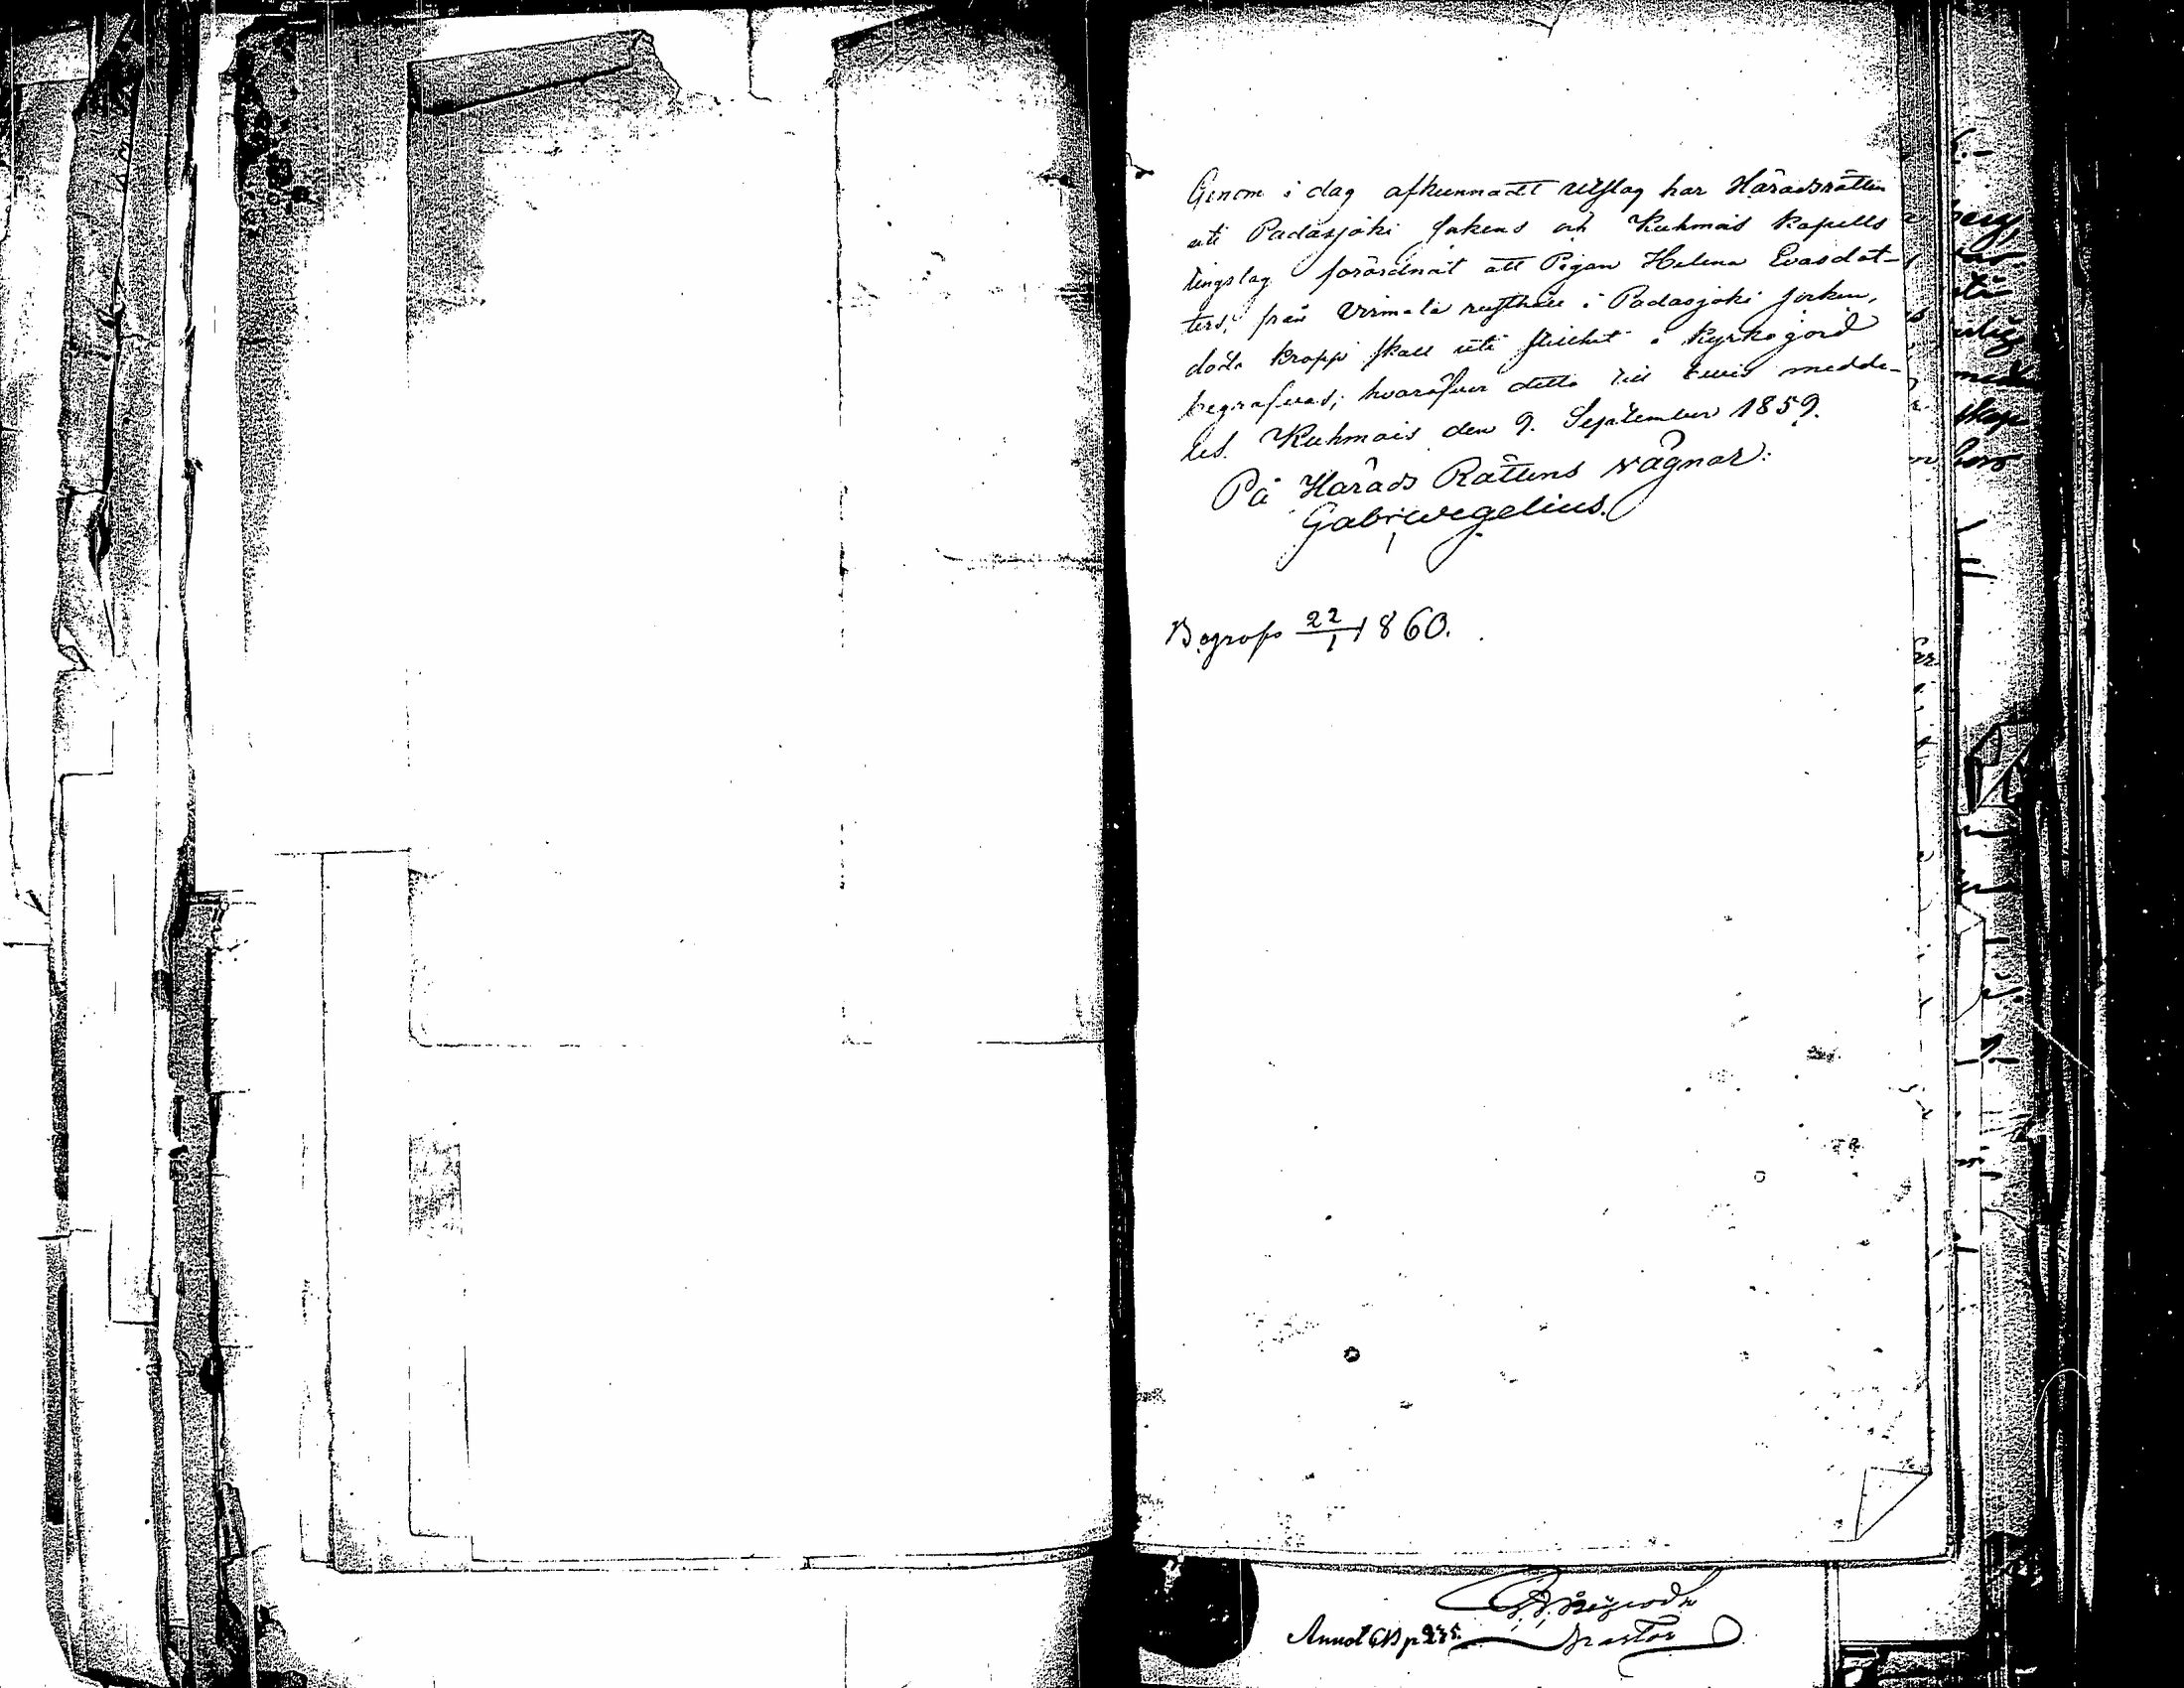 Genom i dag afkunnadt utslag har Häradsrätten
uti Padasjoki Sokens och Kuhmois Kapells
tingslag förordnat att Pigan Helena Evasdot-
ters, från Virmala rusthåll i Padasjoki socken,
döda kropp skall uti stillhet i kyrkogård
begrafvas; hvaröfver detta till bevis medde-
les. Kuhmois den 9. September 1859.
På Härads Rättens vägnar:
Gabr. Wegelius.
Begrofs 22/1 1860.
Annot KB p 235.
Pastor